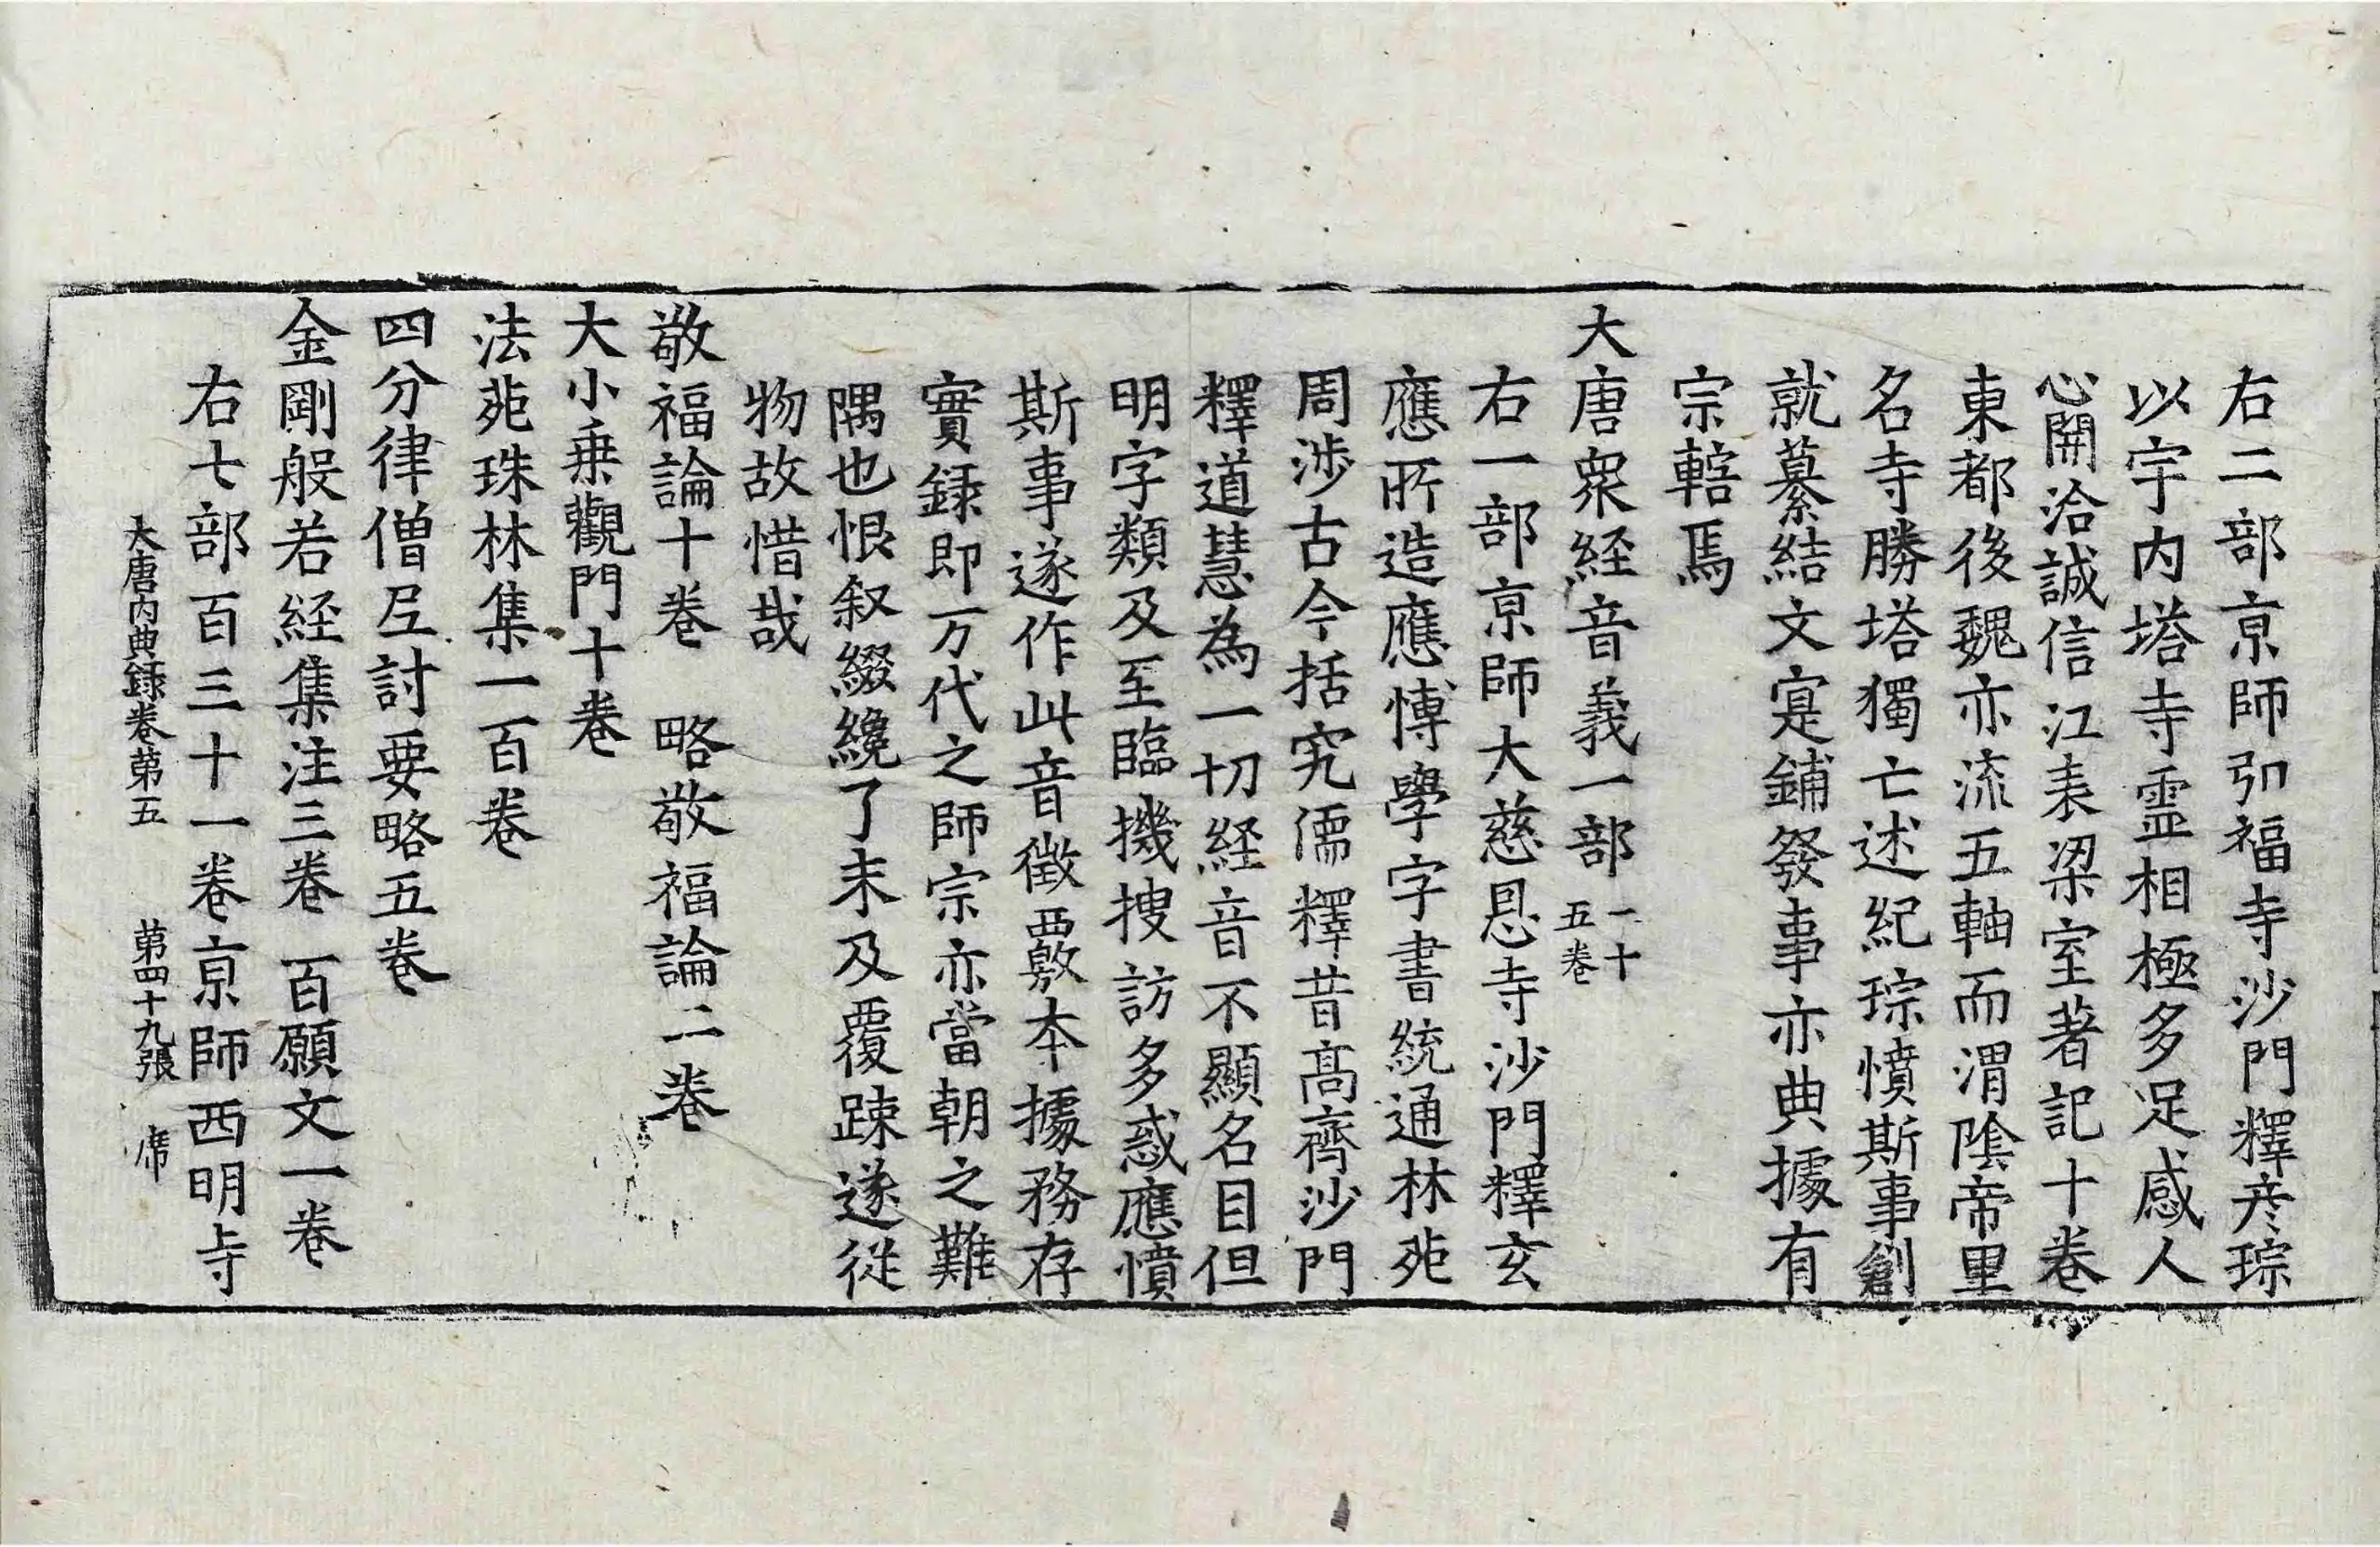 右二部京師弘福寺沙門釋彦琮
以宇内塔寺霊相極多足感人
心開洽誠信江表梁室著記十卷
東都後魏亦流五軸而渭陰帝里
名寺勝塔獨亡述紀琮憤斯事創
就纂結文寔鋪發事亦典據有
宗轄焉
大唐衆経音義一部一十五卷
右一部京師大慈恩寺沙門釋玄
應所造應博學字書統通林苑
周涉古今括究儒釋昔髙齊沙門
釋道慧為一切経音不顯名目但
明字類及至臨機搜訪多惑應憤
斯事遂作此音徵覈本據務存
實録即万代之師宗亦當朝之難
隅也恨叙綴纔了未及覆踈遂從
物故惜哉
敬福論十卷　略敬福論二卷
大小乗觀門十卷
法苑珠林集一百卷
四分律僧尼討要略五卷
金剛般若経集注三卷　百願文一卷
右七部百三十一卷京師西明寺
大唐内典録卷第五　第四十九張　席